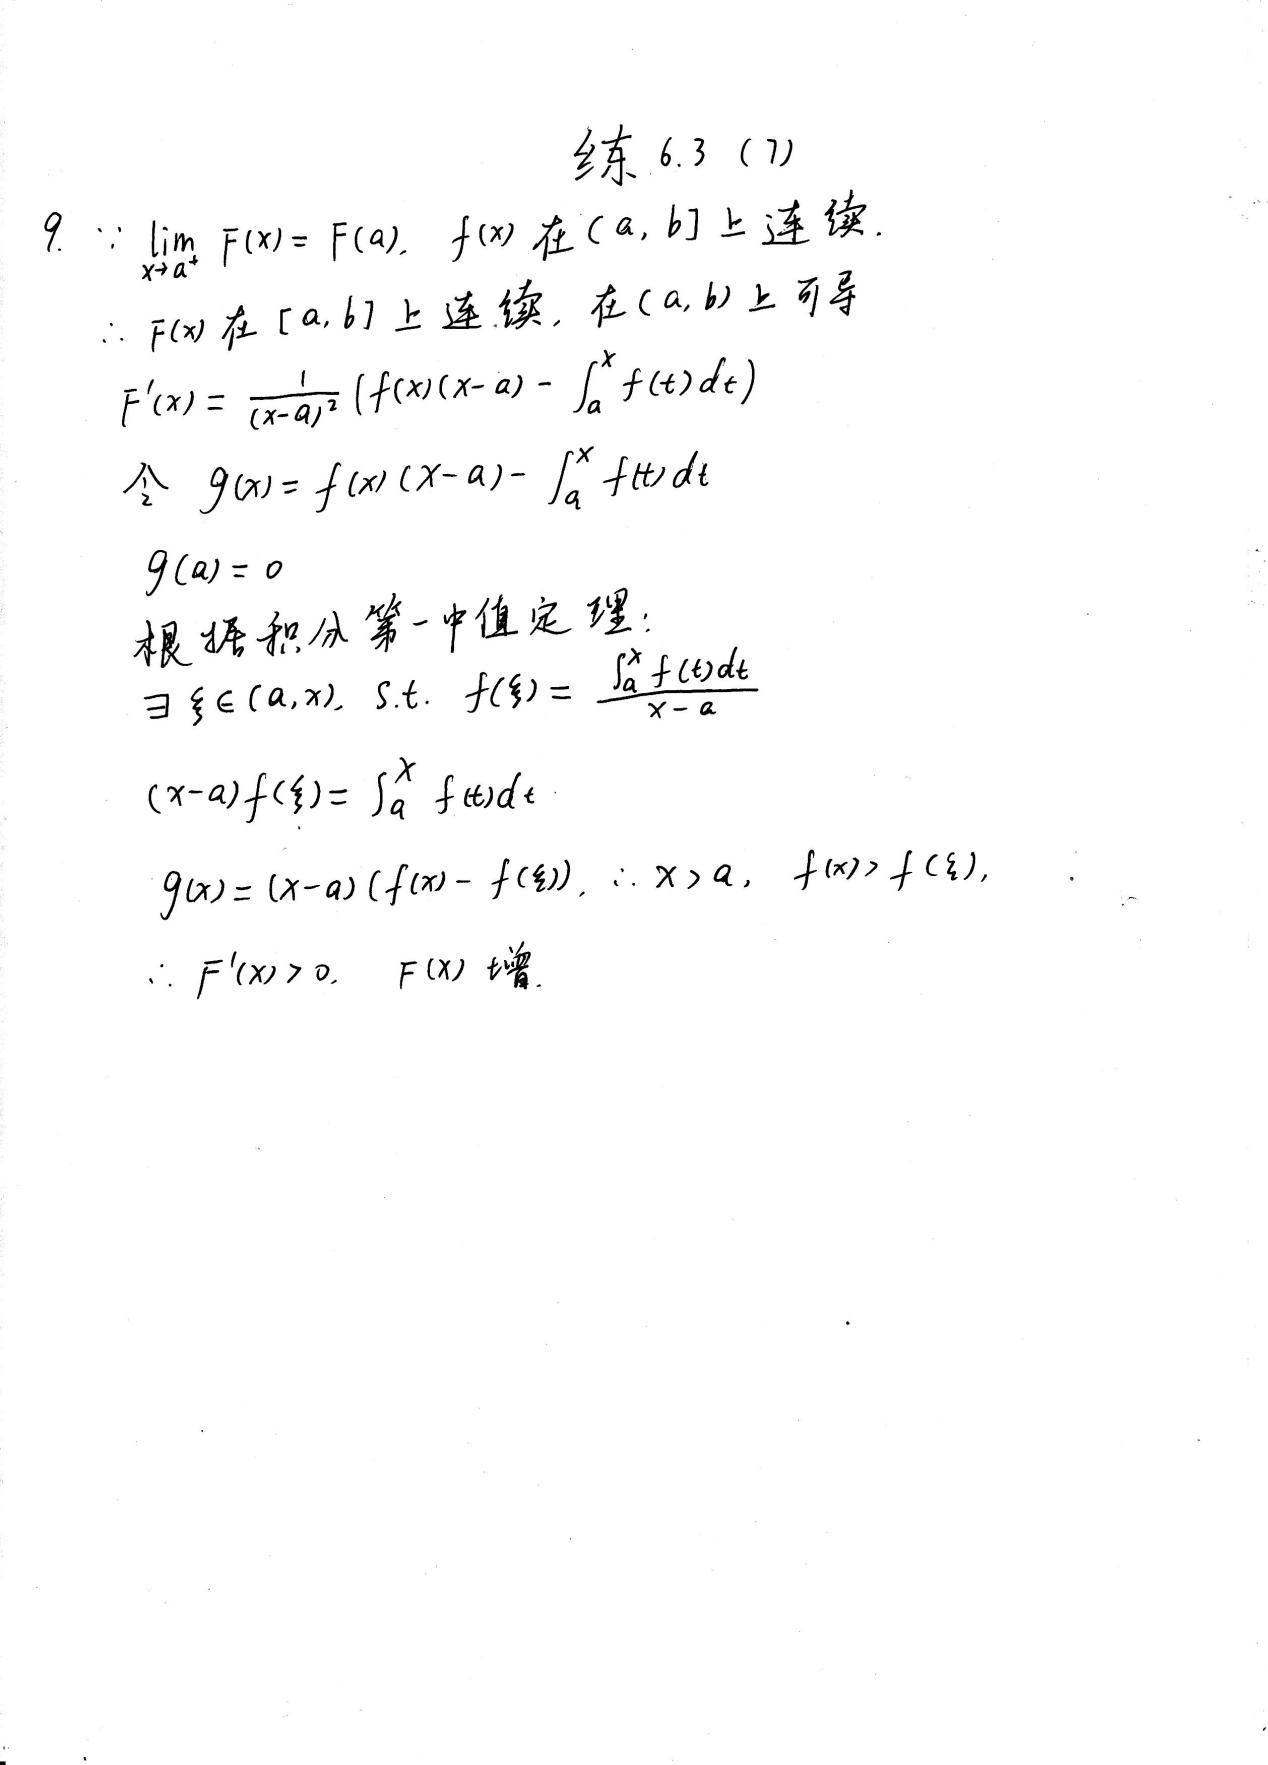 练 6.3 (7)
9. ∵ lim x→a⁺ F(x) = F(a). f(x) 在 (a, b] 上连续.
∴ F(x) 在 [a, b] 上连续, 在 (a, b) 上可导
F'(x) = 1/(x-a)² (f(x)(x-a) - ∫ₐˣ f(t)dt)
令 g(x) = f(x)(x-a) - ∫ₐˣ f(t)dt
g(a) = 0
根据积分第一中值定理:
∃ ξ∈(a, x), s.t. f(ξ) = ∫ₐˣ f(t)dt / x-a
(x-a)f(ξ) = ∫ₐˣ f(t)dt
g(x) = (x-a)(f(x) - f(ξ)), ∴ x > a, f(x) > f(ξ),
∴ F'(x) > 0. F(x) 增.